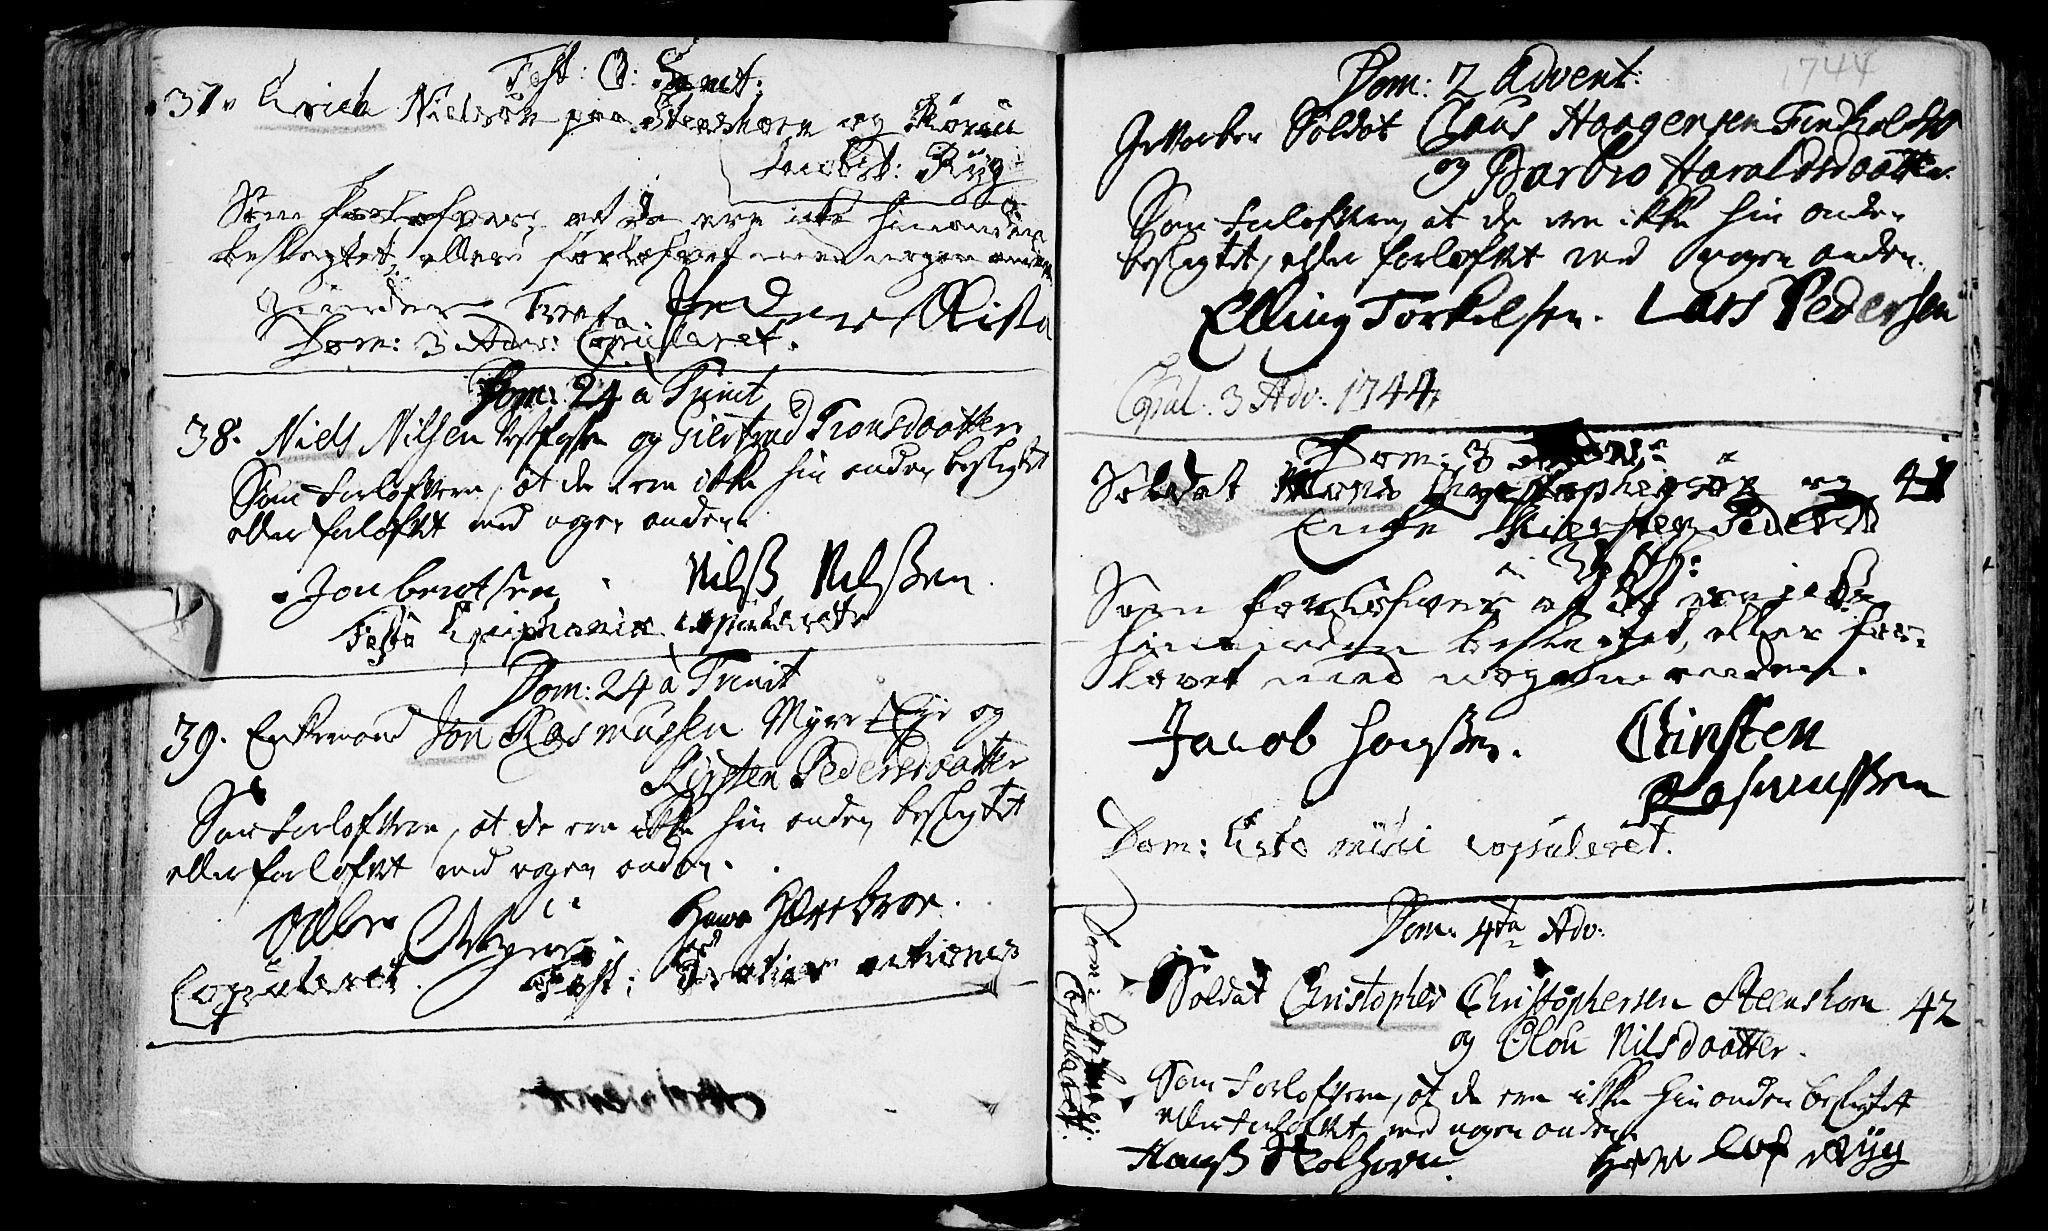 Fest: O: Sanct:
37. Erich Nielssøn paa Steenshorn og Maren
Jacobsd: Ryg
Som forlofvere at de ere icke hinanden
beslegtet, ellers forlofvet med nogen anden
Peder Rista
Dom: 3 Adv: Copuleret.
Dom: 24 à Trinit
38. Niels Nilsen og Giertrud Tronsdaatter
Som Forloftere, at de ere ikke hin anden beslegtet
eller forloftet med nogen anden.
Jon bentsen Nilß Nilßen.
Festo Epiphaniæ copuleret
Dom: 24 à Trinit
39. Enkemand Jon Rasmussen Myre Eje og
Kirsten Pedersdaatter
Som Forloftere, at de ere ikke hin anden beslegtet
eller forloftet med nogen anden.
Hans
Copuleret. Fest:
1744
Dom: 2 Advent:
Soldat Claus Haagensen
og Barbro Haraldsdaatter.
Som Forloftere, at de ere ikke hin anden
beslegtet, eller forloftet med nogen anden.
Elling Torkelsen. Lars Pedersen
Copul. 3 Adv. 1744
Dom: 3
Soldat Christophersøn og 41
Enke Kiersten Pedersd
Som forlofvere at de ere icke
hinanden beslegtet, eller for-
lovet med nogen anden.
Jacob hanßen. Christen
Rasmusßen
Dom: Esto mihi copuleret.
Dom: 4ta Adv:
Soldat Christopher Christophersen Steenshorn 42
og Olou Nilsdaatter.
Som Forloftere, at de ere ikke hin anden beslegtet
eller forloftet med nogen anden.
Hanß Lof Ryg
Dom: Copuleret: